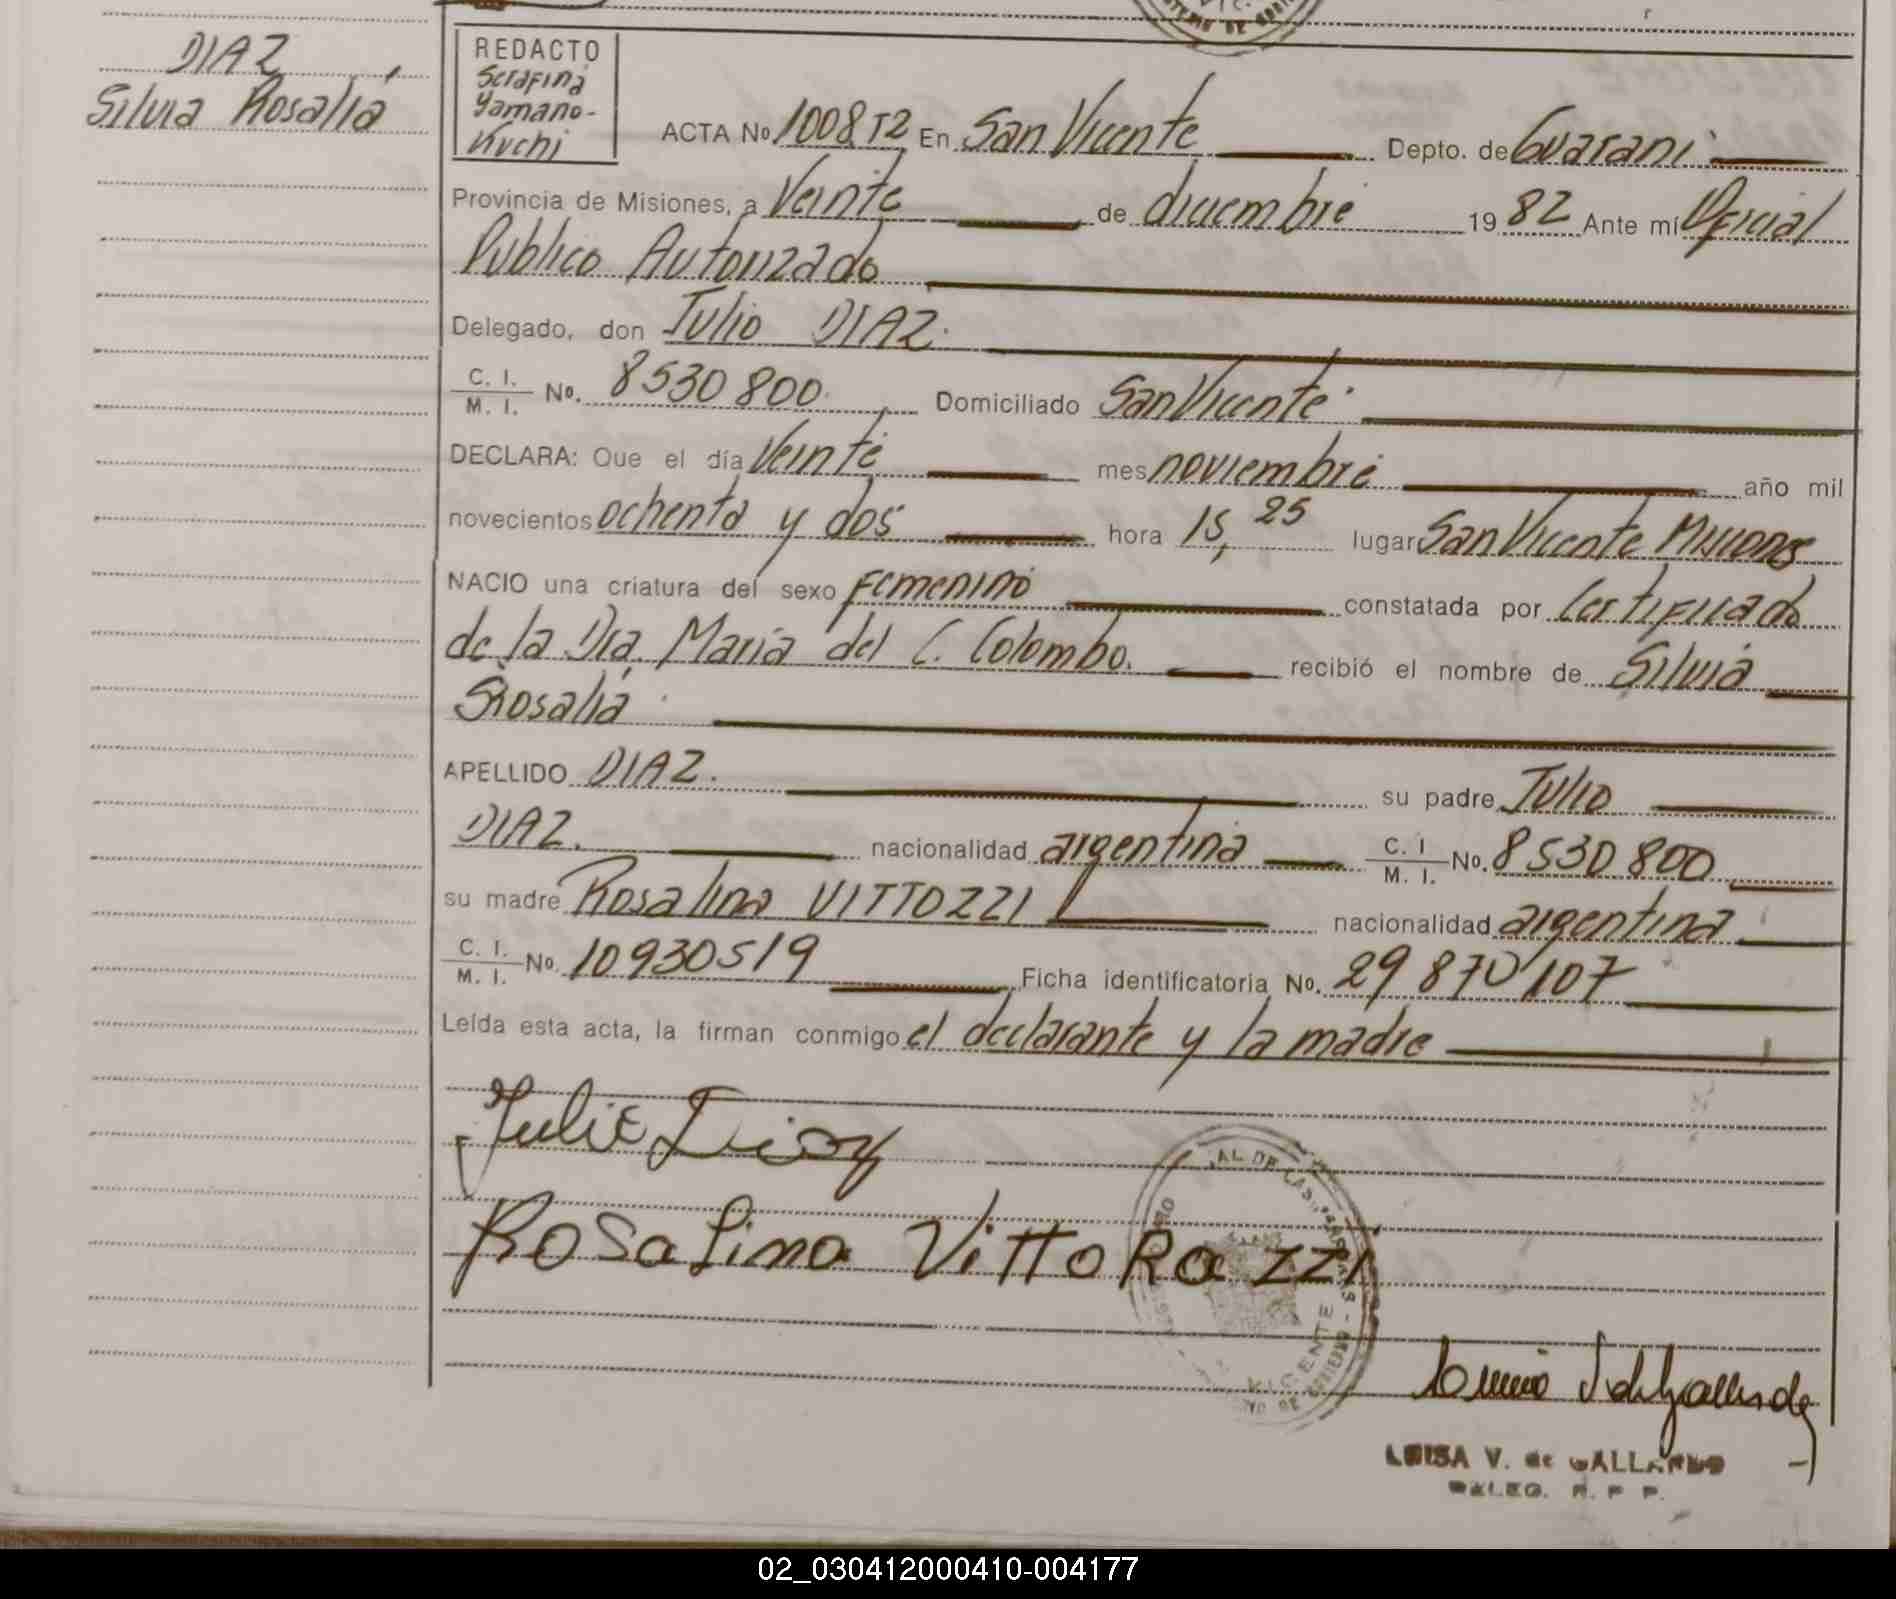 DIAZ,
Silvia Rosalia
REDACTO
Serafina
Yamano-
Kuchi
ACTA No 1008 T2 En San Vicente Depto. de Guarani
Provincia de Misiones, a Veinte de diciembre 19 82 Ante mí Oficial
Publico Autorizado
Delegado, don Julio DIAZ.
C. I.
M. I. No. 8530 800. Domiciliado San Vicente
DECLARA: Que el día Veinte mes noviembre año mil
novecientos ochenta y dos hora 15,25 lugar San Vicente Misiones
NACIO una criatura del sexo femenino constatada por Certificado
de la Dra. Maria del C. Colombo. recibió el nombre de Silvia
Rosalia
APELLIDO DIAZ. su padre Julio
DIAZ. nacionalidad argentina C. I M. I. No. 8530 800
su madre Rosalina VITTOZZI nacionalidad argentina
C. I. M. I. No. 10930519 Ficha identificatoria No. 29 870 107
Leída esta acta, la firman conmigo el declarante y la madre
Julio Diaz
Rosalina VittoRazzi
VICENTE
LUISA V. de GALLARDO
02_030412000410-004177